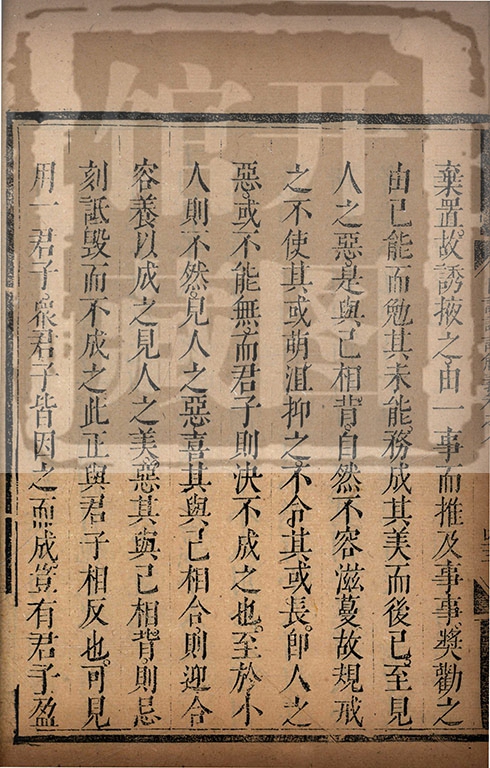 棄置。故誘掖之由一事而推及事事。獎勸之
由已能而勉其未能。務成其美而後已。至見
人之惡。是與己相背。自然不容滋蔓故規戒
之不使其或萌沮抑之不令其或長。即人之
惡。或不能無。而君子則決不成之也。至於小
人則不然。見人之惡喜其與己相合則迎合
容養以成之見人之美。惡其與己相背。則忌
刻詆毀而不成之此正與君子相反也。可見
用一君子。衆君子皆因之而成。豈有君子盈